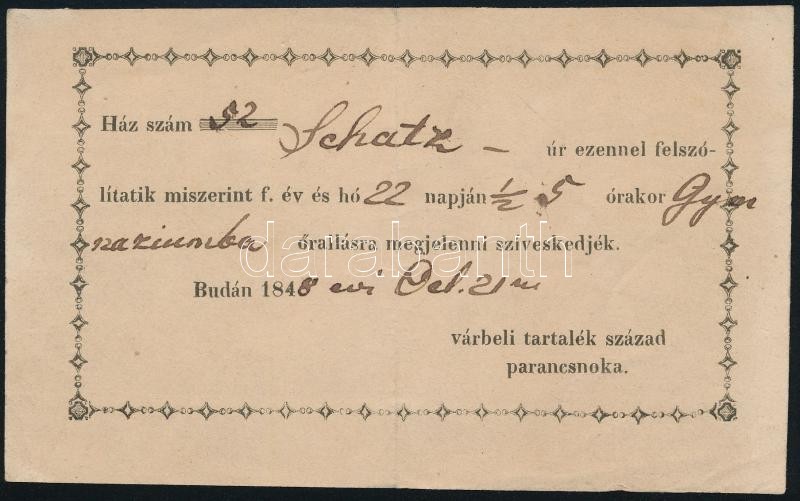 Ház szám 52 Schatz – úr ezennel felszó-
lítatik miszerint f. év és hó 22 napján ½ 5 órakor Gym
naziumba őrállásra megjelenni szíveskedjék.
darabanth
Budán 1848 evi Oct. 21én
várbeli tartalék század
parancsnoka.